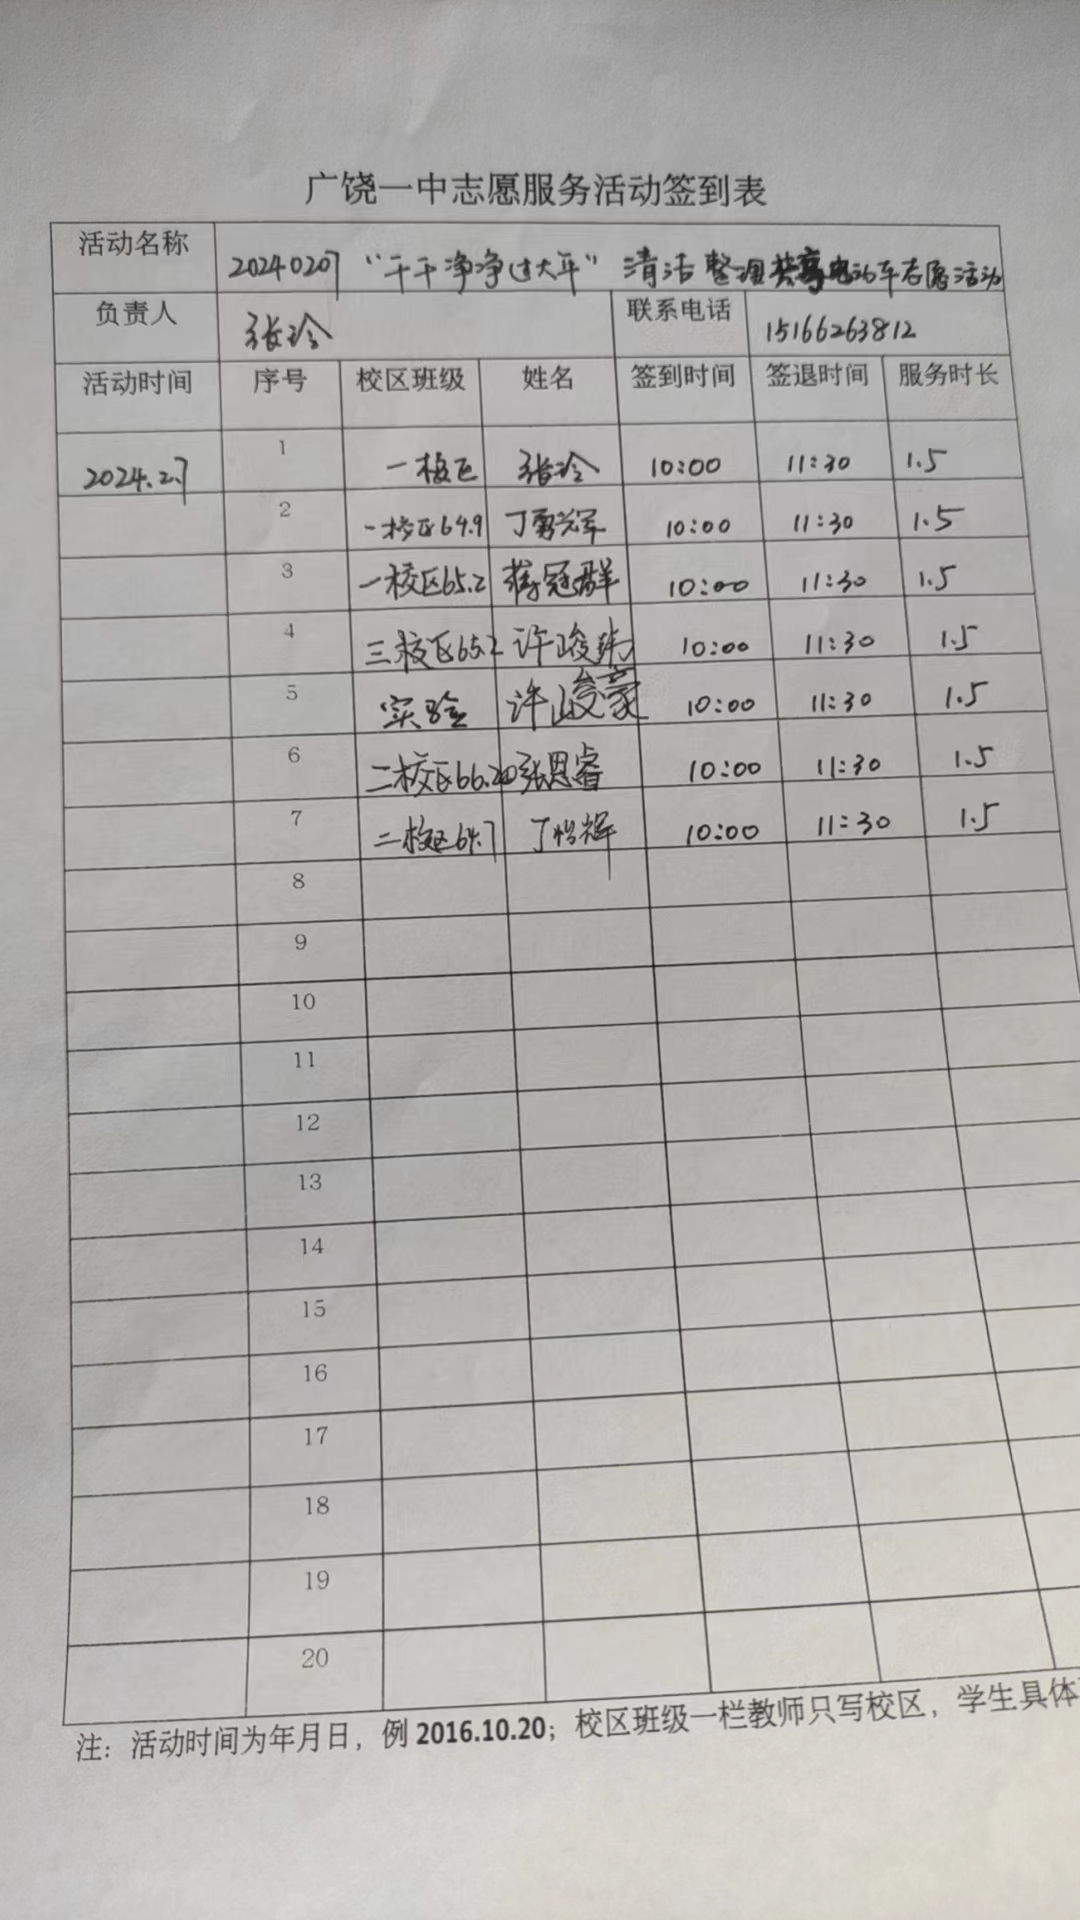 广饶一中志愿服务活动签到表
活动名称 20240207 “干干净净过大年” 清洁整理共享电动车志愿活动
负责人 张玲 联系电话 15166263812
活动时间 序号 校区班级 姓名 签到时间 签退时间 服务时长
2024.2.7 1 一校区 张玲 10:00 11:30 1.5
2 一校区64.9 丁勇辉 10:00 11:30 1.5
3 一校区65.2 蒋冠群 10:00 11:30 1.5
4 三校区65.2 许峻玮 10:00 11:30 1.5
5 实验 许峻豪 10:00 11:30 1.5
6 二校区66.20 张思睿 10:00 11:30 1.5
7 二校区64.7 丁怡辉 10:00 11:30 1.5
8
9
10
11
12
13
14
15
16
17
18
19
20
注：活动时间为年月日，例 2016.10.20；校区班级一栏教师只写校区，学生具体